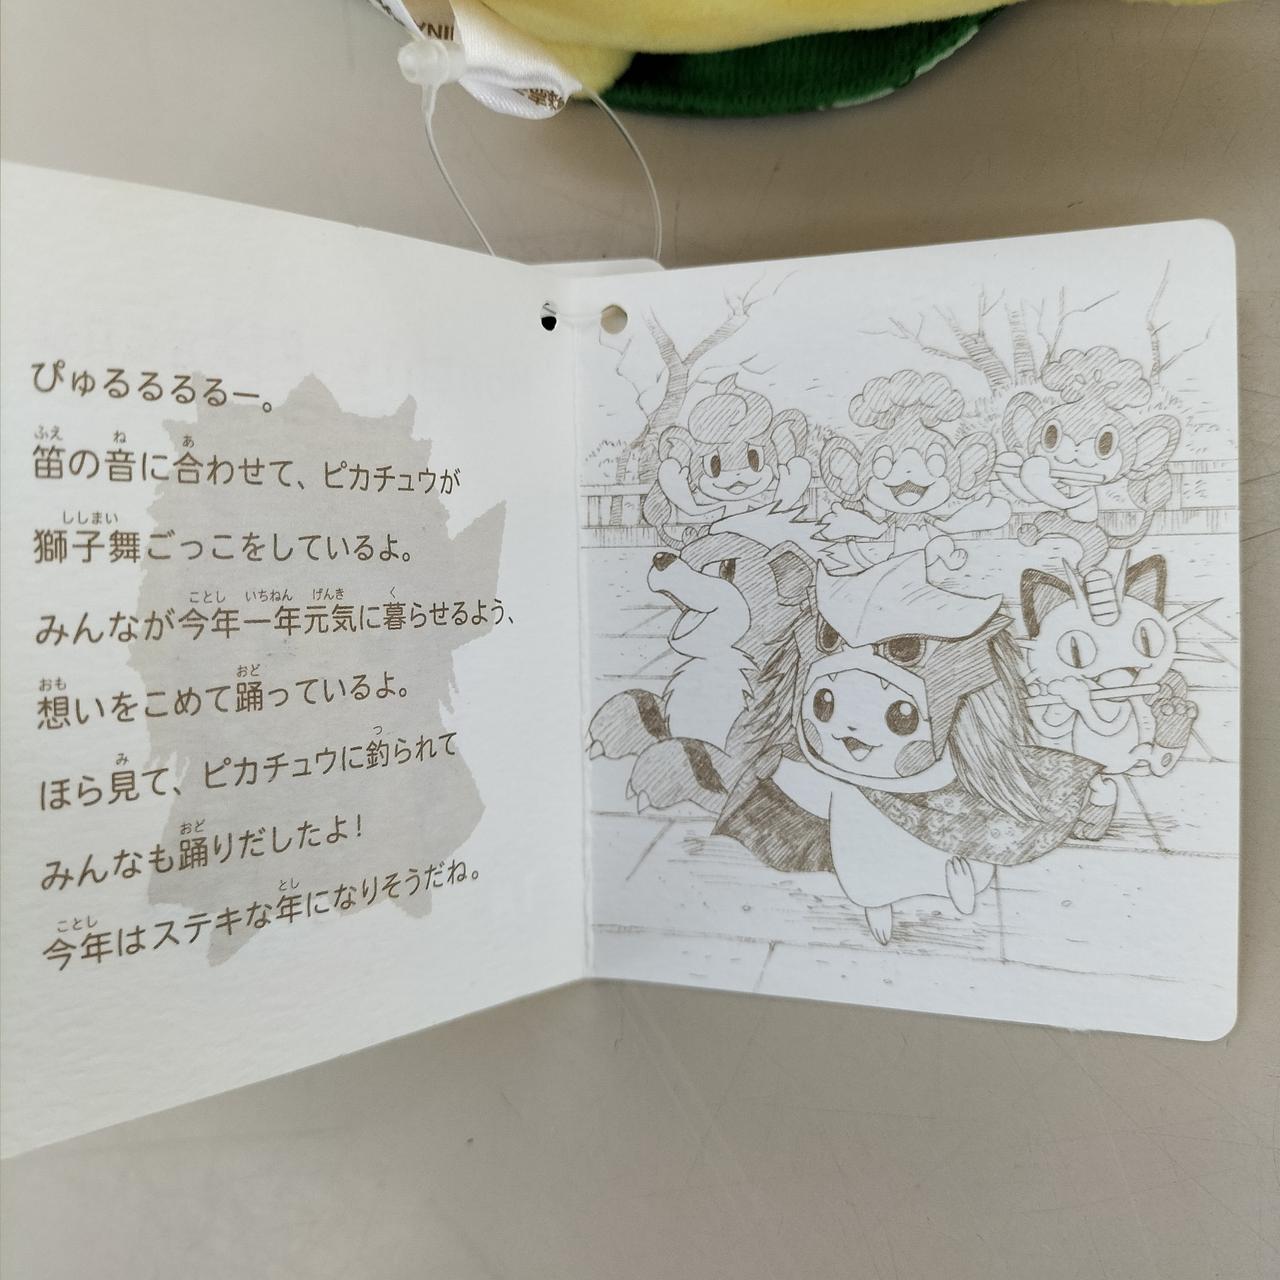 ぴゅるるるるー。
笛の音に合わせて、ピカチュウが
獅子舞ごっこをしているよ。
みんなが今年一年元気に暮らせるよう、
想いをこめて踊っているよ。
ほら見て、ピカチュウに釣られて
みんなも踊りだしたよ！
今年はステキな年になりそうだね。